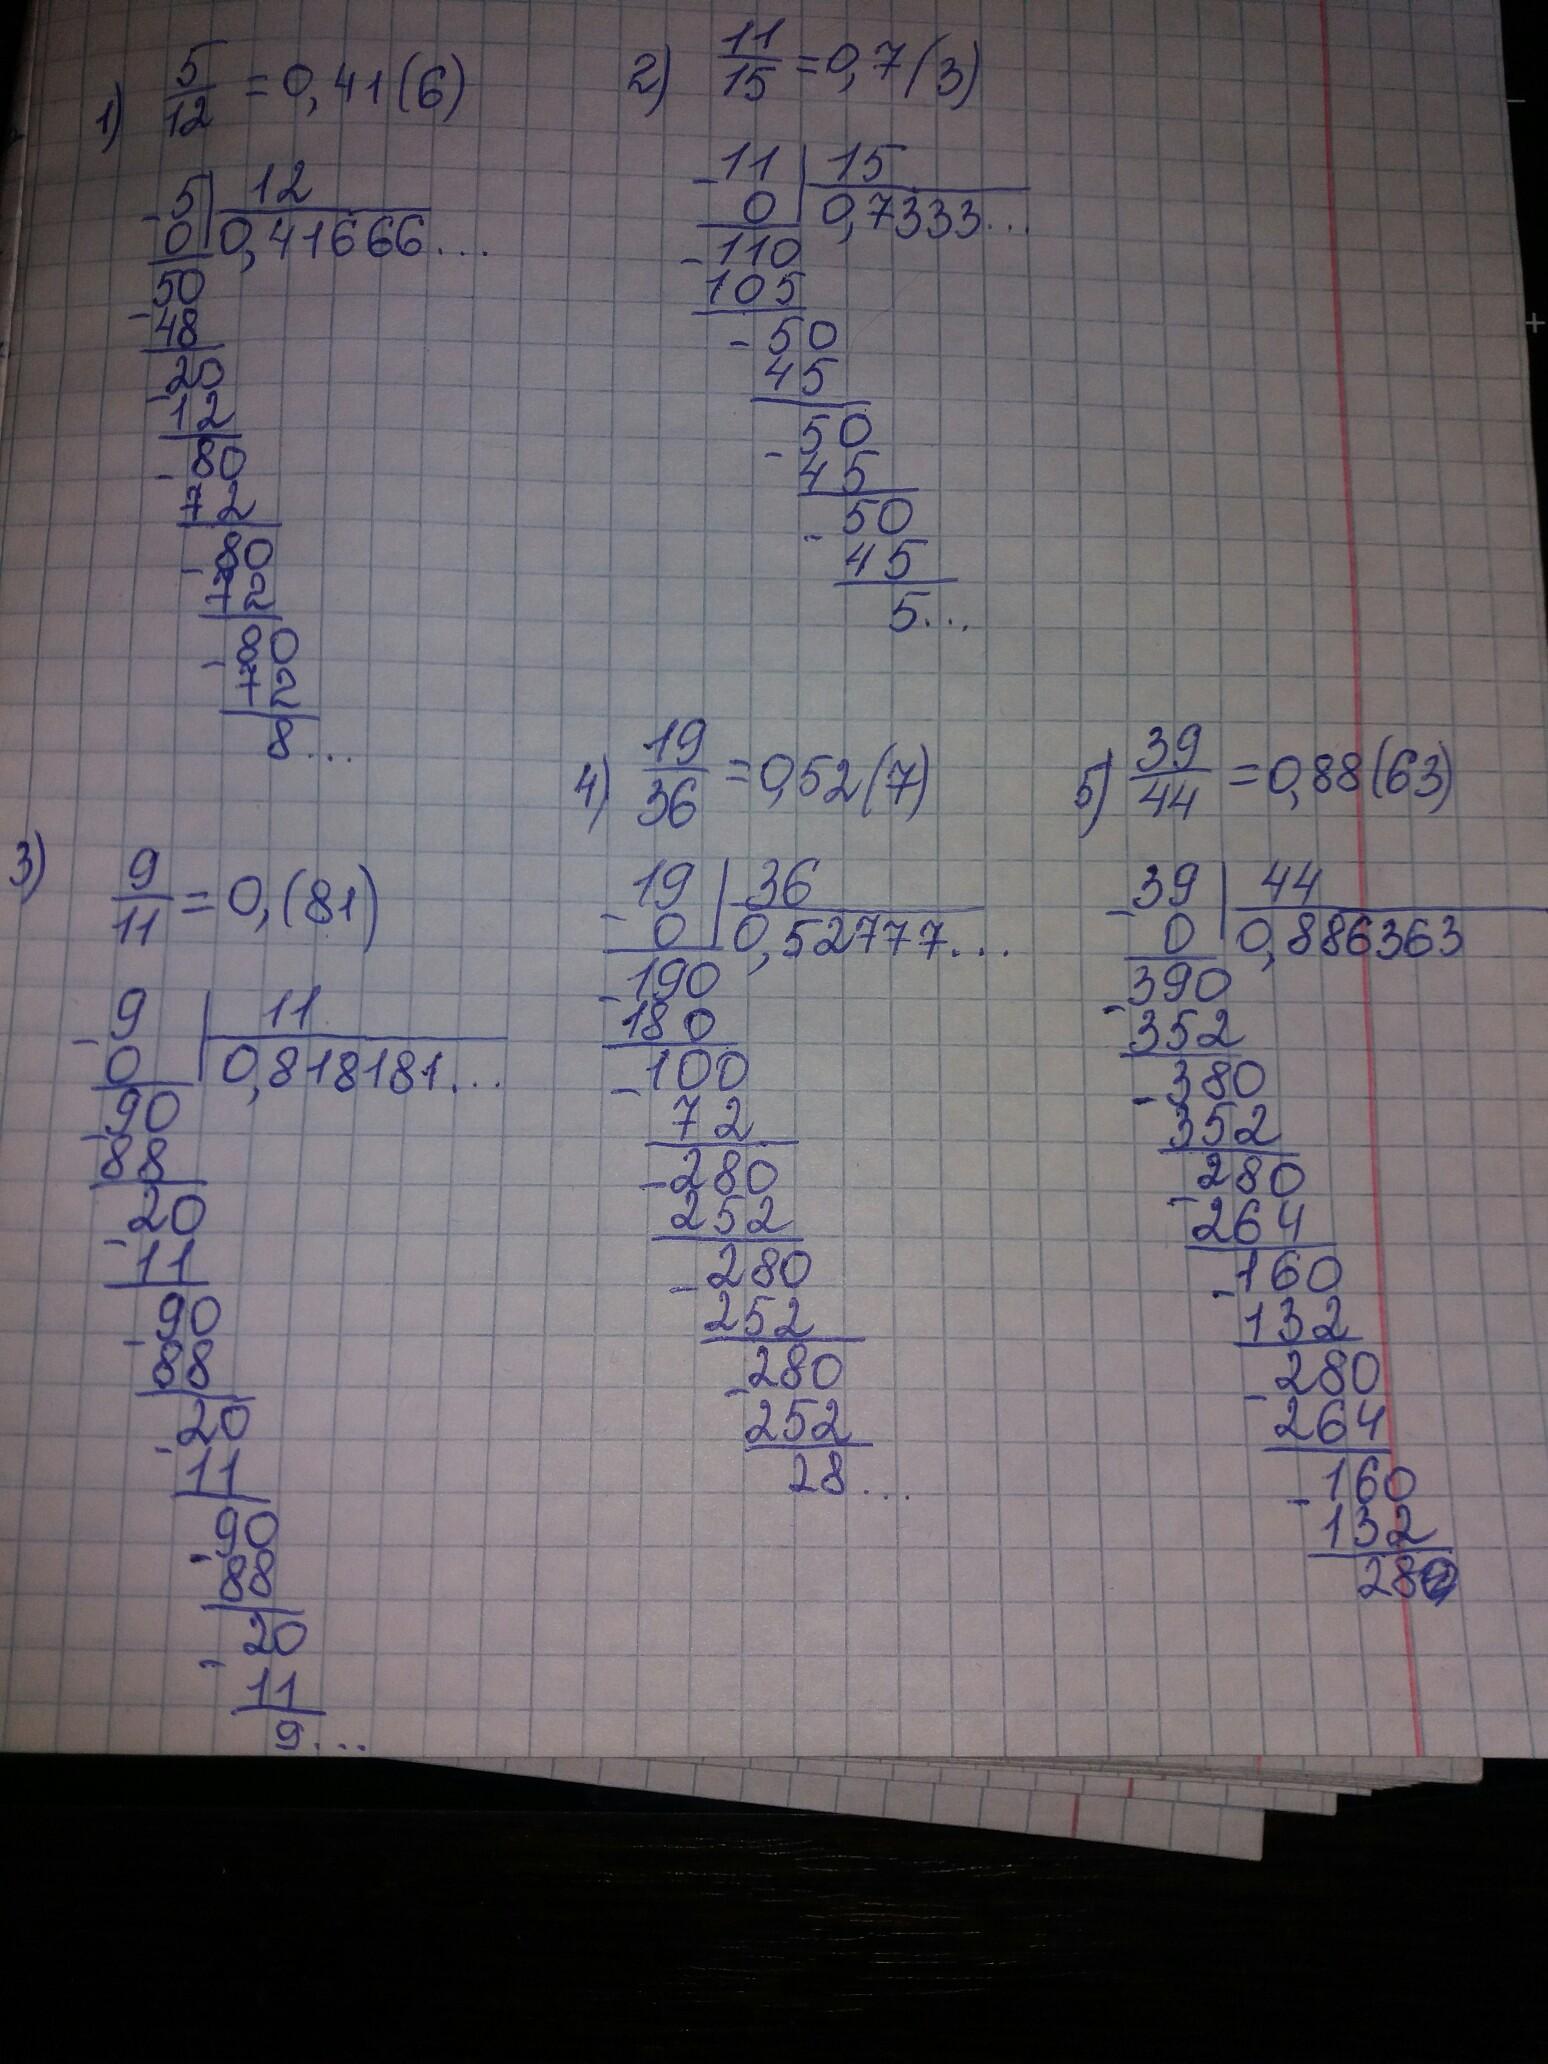 1) 5/12 = 0,41(6)
- 5 | 12
0 | 0,41666...
- 50
48
- 20
12
- 80
72
- 80
72
- 80
72
8...
2) 11/15 = 0,7(3)
- 11 | 15
0 | 0,7333...
- 110
105
- 50
45
- 50
45
- 50
45
5...
3) 9/11 = 0,(81)
- 9 | 11
0 | 0,818181...
- 90
88
- 20
11
- 90
88
- 20
11
- 90
88
- 20
11
9...
4) 19/36 = 0,52(7)
- 19 | 36
0 | 0,52777...
- 190
180
- 100
72
- 280
252
- 280
252
- 280
252
28...
5) 39/44 = 0,88(63)
- 39 | 44
0 | 0,886363
- 390
352
- 380
352
- 280
264
- 160
132
- 280
264
- 160
132
28